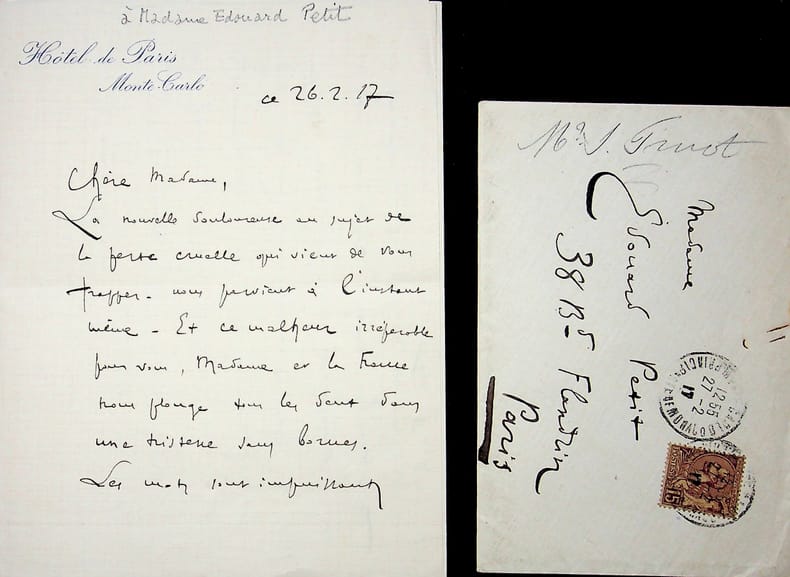 à Madame Edouard Petit
Hôtel de Paris
Monte-Carlo
ce 26.2.17
Chère Madame,
La nouvelle douloureuse au sujet de
la perte cruelle qui vient de vous
frapper - nous parvient à l'instant
même - Et ce malheur irréparable
pour vous, Madame et la France
nous plonge tous les deux dans
une tristesse sans bornes.
Les mots sont impuissants
Madame
Edouard Petit
38 Bd Flandrin
Paris
12 55
27 - 2
17
15